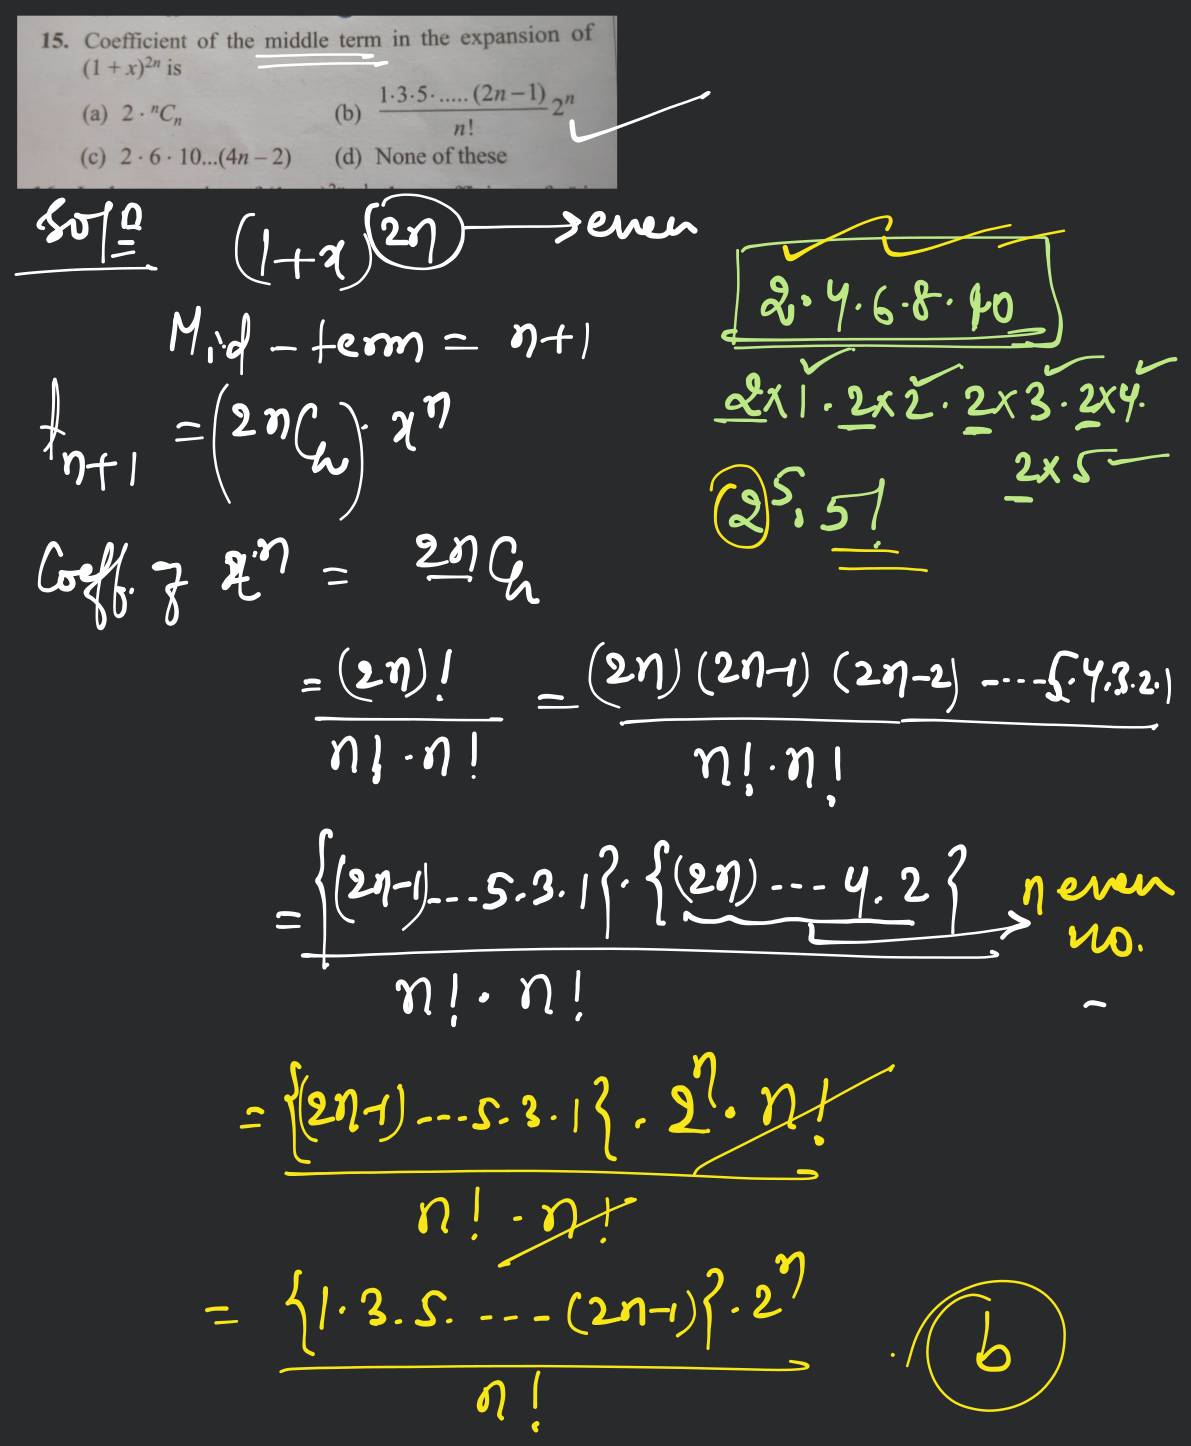 15. Coefficient of the middle term in the expansion of
(1 + x)²ⁿ is
(a) 2 · ⁿCₙ (b) 1·3·5·.....(2n−1)/n! 2ⁿ
(c) 2 · 6 · 10...(4n – 2) (d) None of these
Solⁿ (1+x)²ⁿ → even
Mid - term = n+1
tₙ₊₁ = (2nCₙ) · xⁿ
Coeff. of xⁿ = 2nCₙ
2·4·6·8·10
2×1·2×2·2×3·2×4·
2×5
2⁵·5!
= (2n)!/n!·n! = (2n)(2n-1)(2n-2)----5·4·3·2·1/n!·n!
= {(2n-1)---5·3·1}·{(2n)---4·2}/n!·n! → n even
no.
= {(2n-1)---5·3·1}·2ⁿ·n!/n!·n!
= {1·3·5·----(2n-1)}·2ⁿ/n!
b